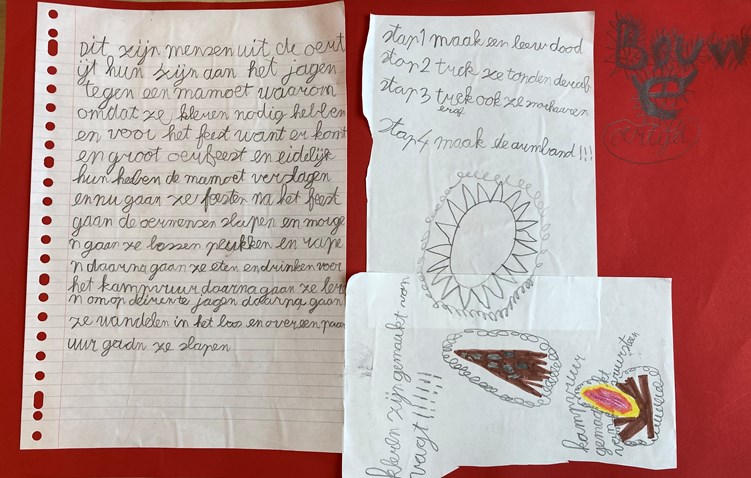 Dit zijn mensen uit de oert
ijt hun zijn aan het jagen
tegen een mamoet waarom
omdat ze kleren nodig hebben
en voor het feest want er komt
en groot oerfeest en eidelijk
hun heben de mamoet verslagen
en nu gaan ze feesten na het feest
gaan de oermensen slapen en morge
n gaan ze bossen plukken en rape
n daarna gaan ze eten en drinken voor
het kampvuur daarna gaan ze lere
n om op deirente jagen daarna gaan
ze wandelen in het bos en over een paar
uur gaan ze slapen
stap 1 maak een leeuw dood
stap 2 trek ze tanden deraf
stap 3 trek ook ze
eraf
stap 4 maak de armband !!!
kleren zijn gemaukt van
vagt !!!!!!!
kampvuur
gemaakt
van vuursteen
Bouw
e